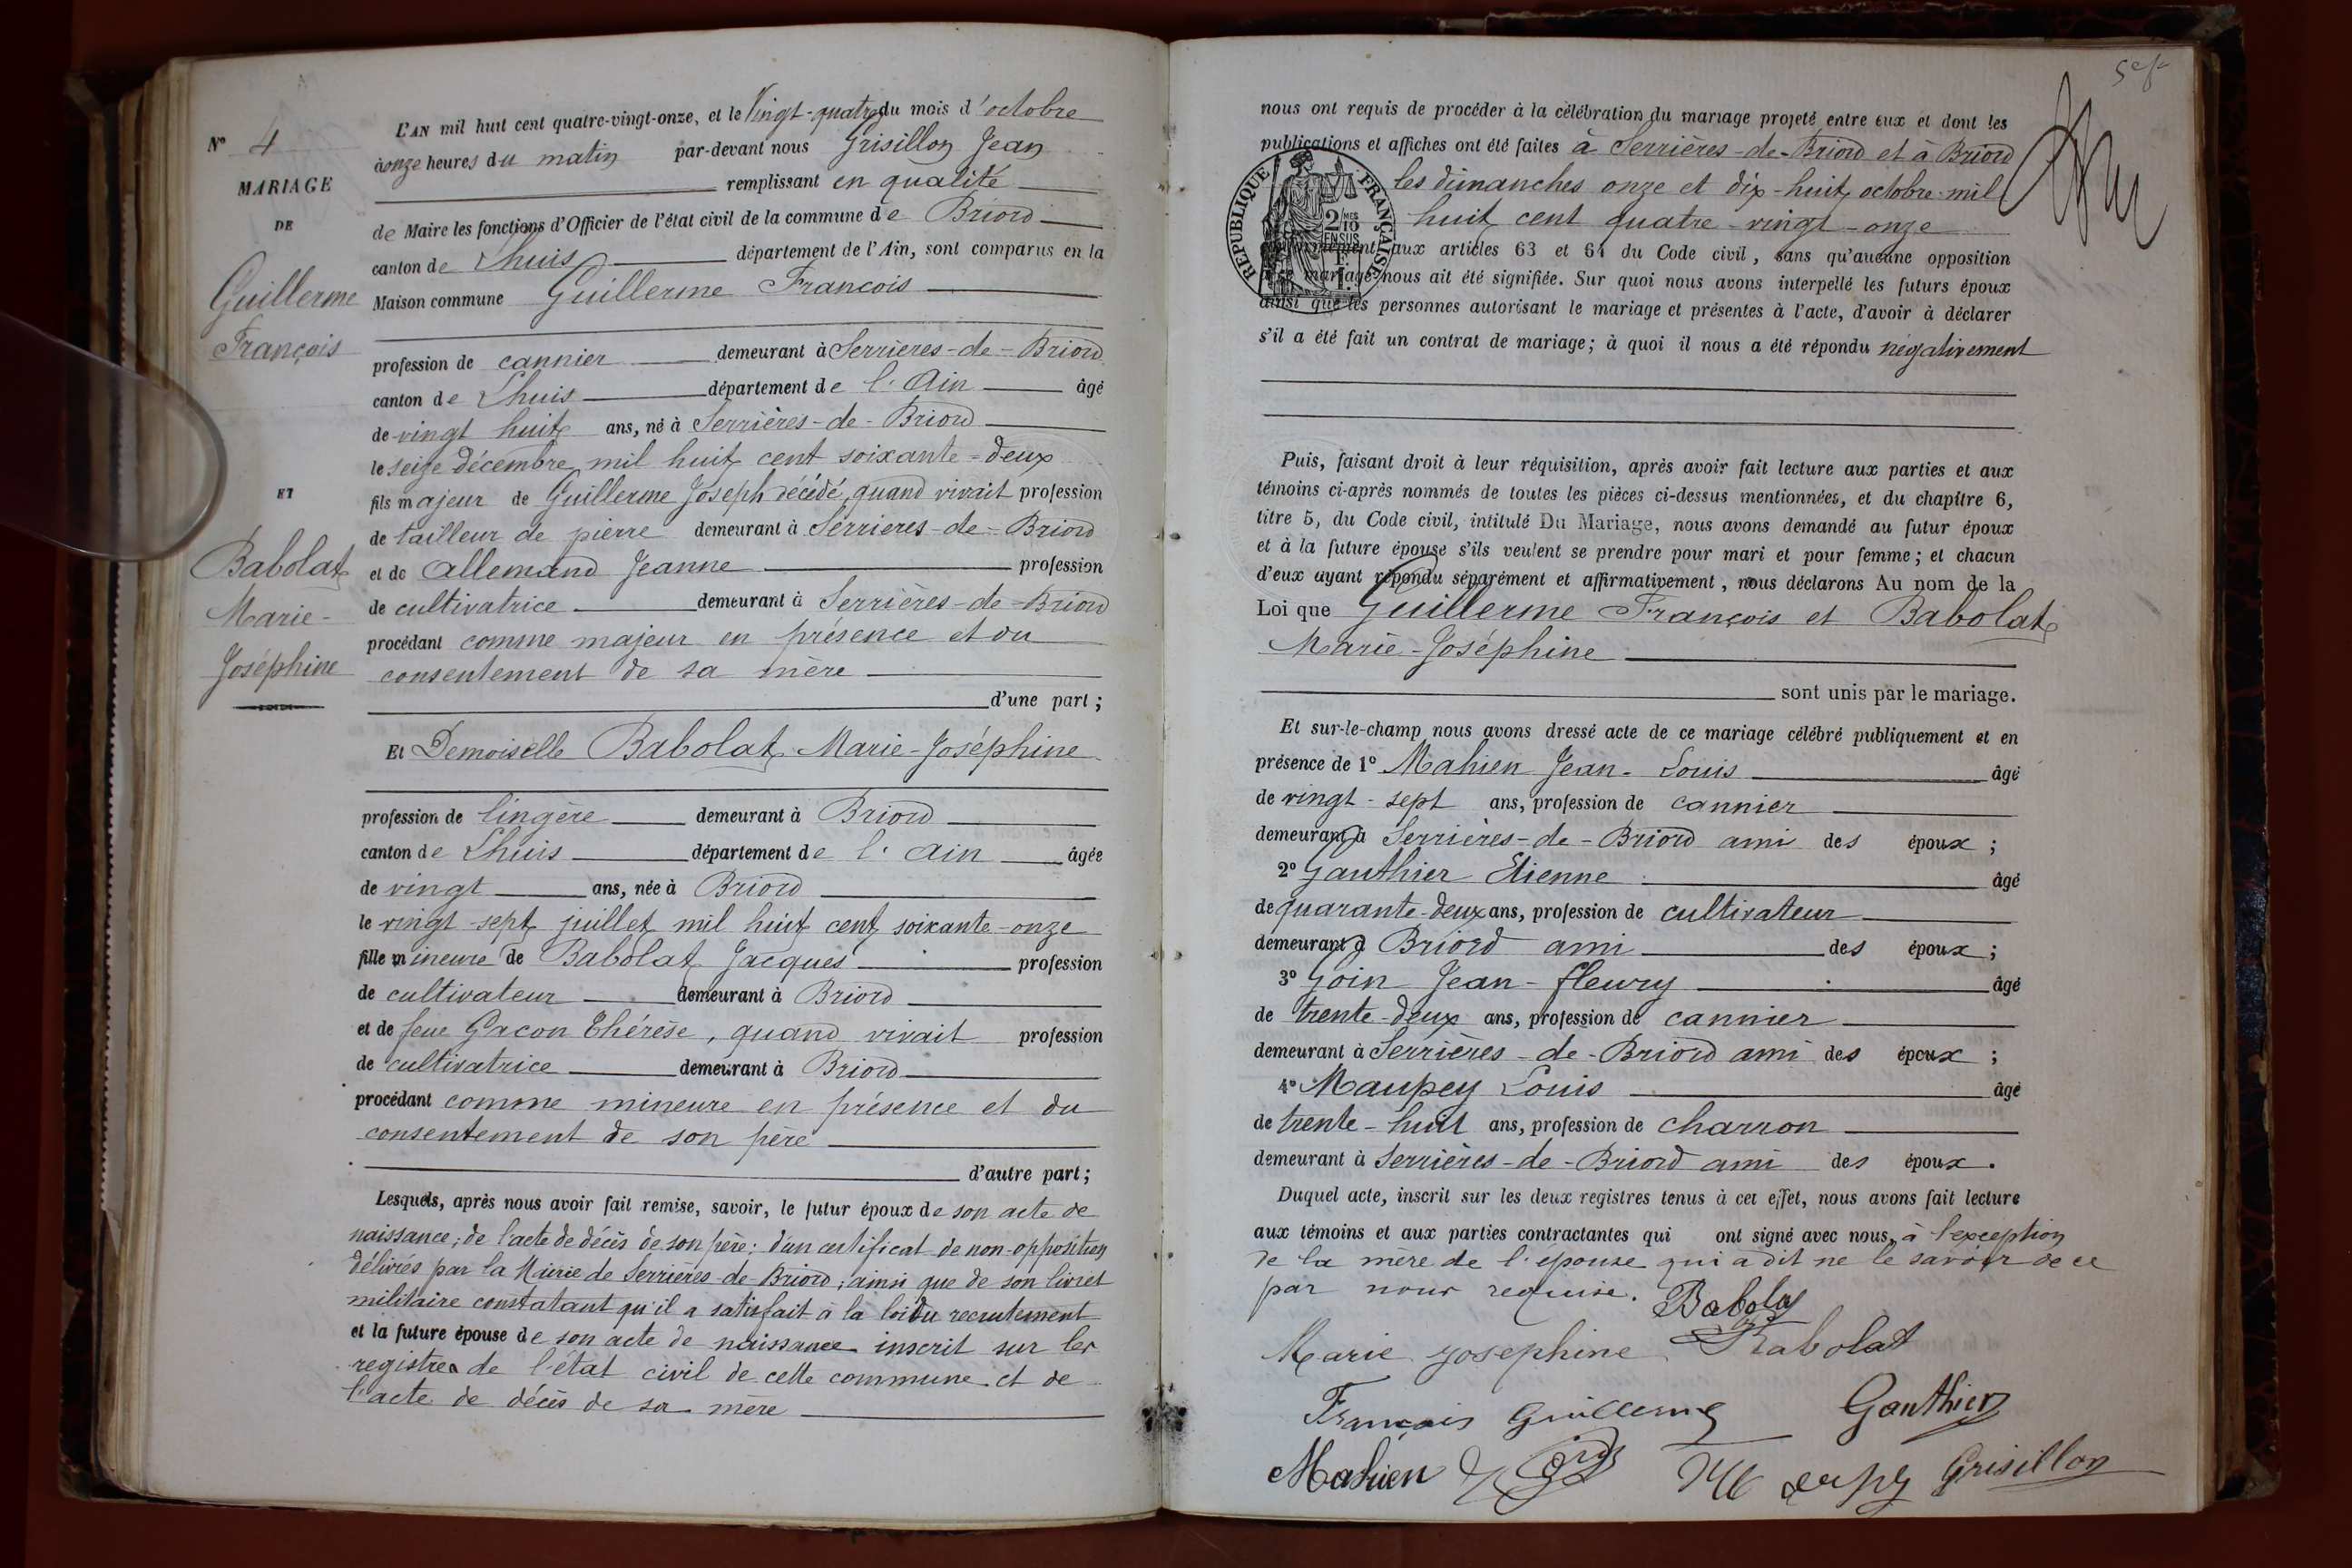 N° 4
MARIAGE
DE
Guillerme
François
ET
Babolat
Marie-
Joséphine
L'AN mil huit cent quatre-vingt-onze, et le Vingt-quatre du mois d'octobre
à onze heures du matin par-devant nous Grisillon Jean
remplissant en qualité
de Maire les fonctions d'Officier de l'état civil de la commune de Briord
canton de Lhuis département de l'Ain, sont comparus en la
Maison commune Guillerme Francois
profession de cannier demeurant à Serrières-de-Briord
canton de Lhuis département de l'Ain âgé
de vingt huit ans, né à Serrières-de-Briord
le seize décembre mil huit cent soixante-deux
fils majeur de Guillerme Joseph décédé, quand vivait profession
de tailleur de pierre demeurant à Serrieres-de-Briord
et de Allemand Jeanne profession
de cultivatrice demeurant à Serrières-de-Briord
procédant comme majeur en présence et du
consentement de sa mère
d'une part ;
Et Demoiselle Babolat Marie-Joséphine
profession de lingère demeurant à Briord
canton de Lhuis département de l'Ain âgée
de vingt ans, née à Briord
le vingt-sept juillet mil huit cent soixante-onze
fille mineure de Babolat Jacques profession
de cultivateur demeurant à Briord
et de feue Gacon Thérèse, quand vivait profession
de cultivatrice demeurant à Briord
procédant comme mineure en présence et du
consentement de son père
d'autre part ;
Lesquels, après nous avoir fait remise, savoir, le futur époux de son acte de
naissance; de l'acte de décès de son père; d'un certificat de non-opposition
délivrés par la Mairie de Serrières-de-Briord; ainsi que de son livret
militaire constatant qu'il a satisfait à la loi du recrutement
et la future épouse de son acte de naissance inscrit sur les
registres de l'état civil de cette commune et de
l'acte de décès de sa mère
nous ont requis de procéder à la célébration du mariage projeté entre eux et dont les
publications et affiches ont été faites à Serrières-de-Briord et à Briord
les dimanches onze et dix-huit octobre mil
huit cent quatre-vingt-onze
RÉPUBLIQUE FRANÇAISE
2/10 MES
EN SUS
1 F.
conformément aux articles 63 et 64 du Code civil, sans qu'aucune opposition
à ce mariage nous ait été signifiée. Sur quoi nous avons interpellé les futurs époux
ainsi que les personnes autorisant le mariage et présentes à l'acte, d'avoir à déclarer
s'il a été fait un contrat de mariage; à quoi il nous a été répondu négativement
Puis, faisant droit à leur réquisition, après avoir fait lecture aux parties et aux
témoins ci-après nommés de toutes les pièces ci-dessus mentionnées, et du chapitre 6,
titre 5, du Code civil, intitulé Du Mariage, nous avons demandé au futur époux
et à la future épouse s'ils veulent se prendre pour mari et pour femme; et chacun
d'eux ayant répondu séparément et affirmativement, nous déclarons Au nom de la
Loi que Guillerme François et Babolat
Marie-Joséphine
sont unis par le mariage.
Et sur-le-champ nous avons dressé acte de ce mariage célébré publiquement et en
présence de 1° Mahien Jean-Louis âgé
de vingt-sept ans, profession de cannier
demeurant à Serrières-de-Briord ami des époux ;
2° Gauthier Etienne âgé
de quarante-deux ans, profession de cultivateur
demeurant à Briord ami des époux ;
3° Goin Jean-fleury âgé
de trente-deux ans, profession de cannier
demeurant à Serrières-de-Briord ami des époux ;
4° Maupey Louis âgé
de trente-huit ans, profession de charron
demeurant à Serrières-de-Briord ami des époux.
Duquel acte, inscrit sur les deux registres tenus à cet effet, nous avons fait lecture
aux témoins et aux parties contractantes qui ont signé avec nous, à l'exception
de la mère de l'épouse qui a dit ne le savoir de ce
par nous requise. Babolat
Marie josephine Babolat
François Guillerme Gauthier
Mahien Grisillon